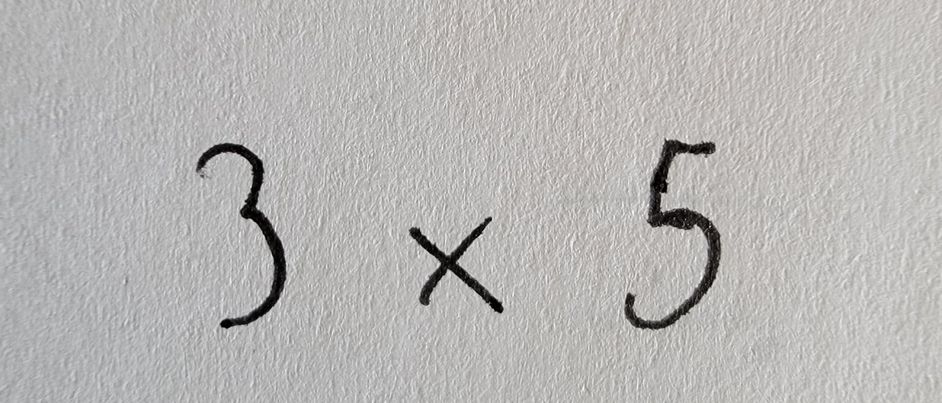 3 × 5